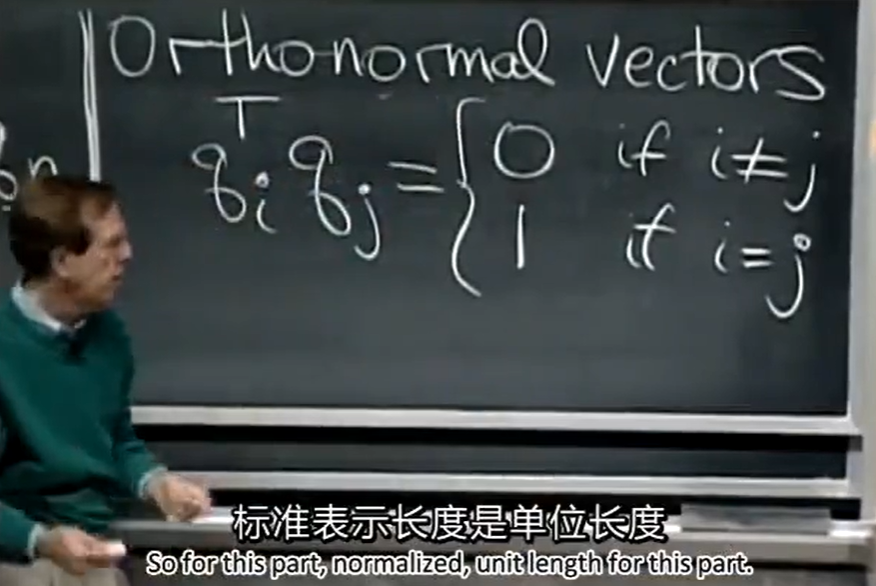 Orthonormal vectors
qᵢᵀ qⱼ = { 0 if i ≠ j
1 if i = j
标准表示长度是单位长度
So for this part, normalized, unit length for this part.